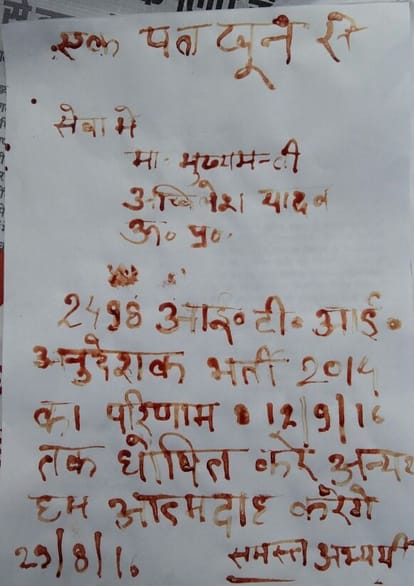 एक पत्र खून से
सेवा मे
मा. मुख्यमन्त्री
अखिलेश यादव
उ॰ प्र॰
2498 आई॰ टी॰ आई॰
अनुदेशक भर्ती 2014
का परिणाम 12/9/16
तक घोषित करें अन्यथा
हम आत्मदाह करेंगे
29/8/16
समस्त अभ्यर्थी